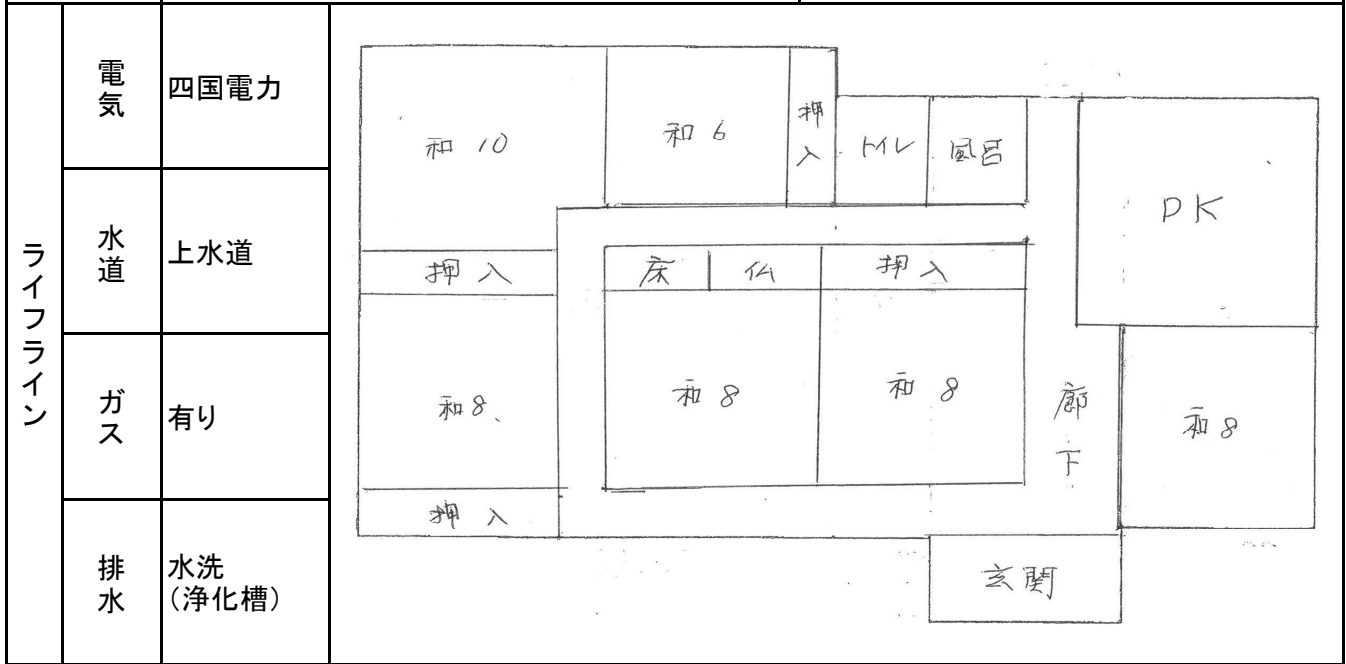 ライフライン
電気
四国電力
水道
上水道
ガス
有り
排水
水洗
(浄化槽)
和 10
和 6
押入
トイレ
風呂
DK
押入
床
仏
押入
和8
和8
和8
廊下
和8
押入
玄関